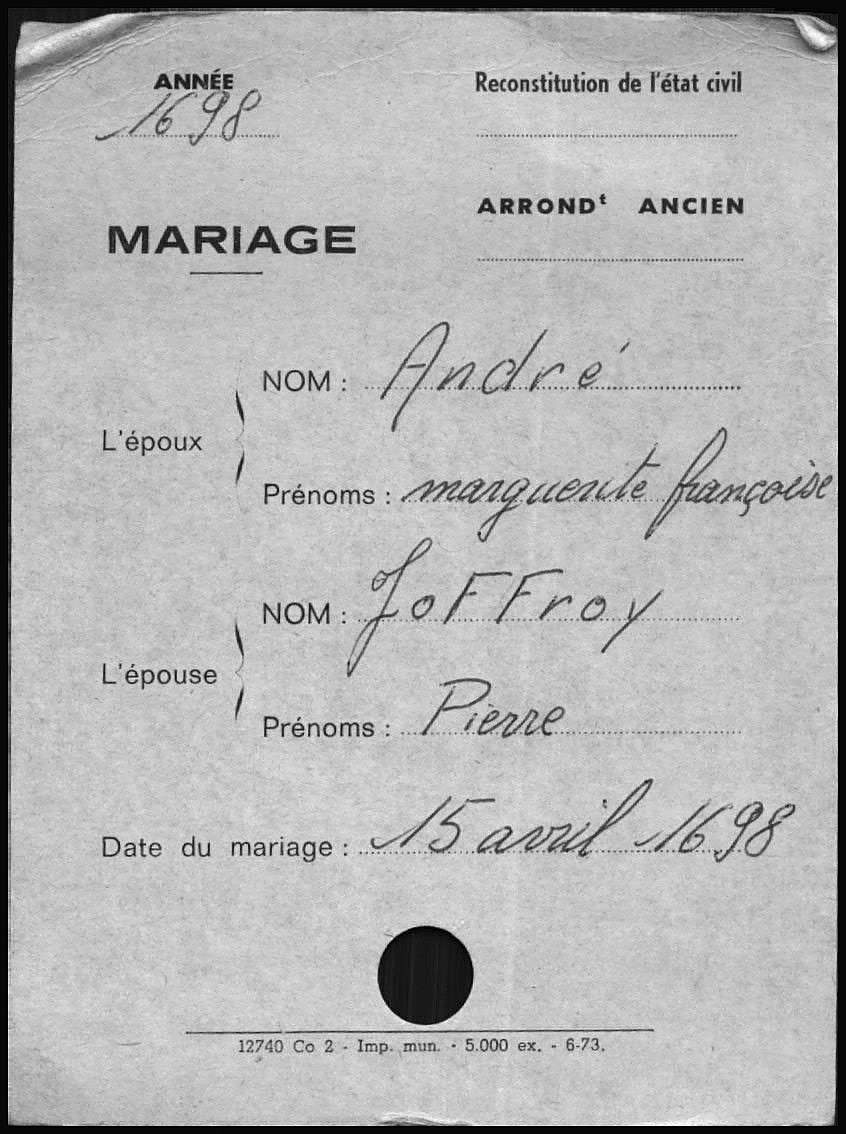 ANNÉE
1698
Reconstitution de l'état civil
ARRONDt ANCIEN
MARIAGE
L'époux
NOM : André
Prénoms : marguerite françoise
L'épouse
NOM : JoFFroy
Prénoms : Pierre
Date du mariage : 15 avril 1698
12740 Co 2 - Imp. mun. - 5.000 ex. - 6-73.